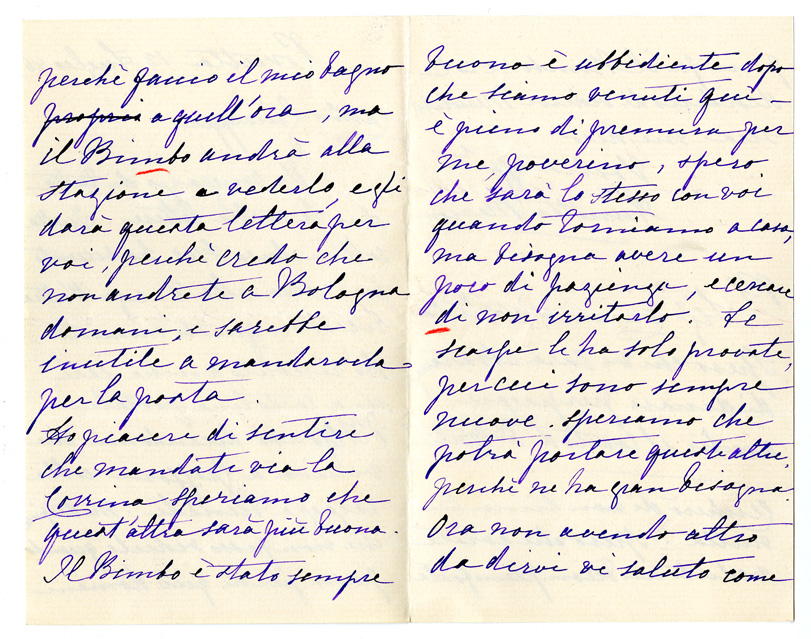 perchè faccio il mio bagno
proprio a quell'ora, ma
il Bimbo andrà alla
stazione a vederlo, e gli
darà questa lettera per
voi, perchè credo che
non andrete a Bologna
domani, e sarebbe
inutile a mandarvela
per la posta.
Ho piacere di sentire
che mandati via la
Corrina speriamo che
quest'altra sarà più buona.
Il Bimbo è stato sempre
buono è ubbidiente dopo
che siamo venuti qui —
è pieno di premura per
me, poverino, spero
che sarà lo stesso con voi
quando torniamo a casa,
ma bisogna avere un
poco di pazienza, e cercare
di non irritarlo. Le
scarpe le ha solo provate,
per ceui sono sempre
nuove. speriamo che
potrà portare queste altre,
perchè ne ha gran bisogna.
Ora non avendo altro
da dirvi vi saluto come